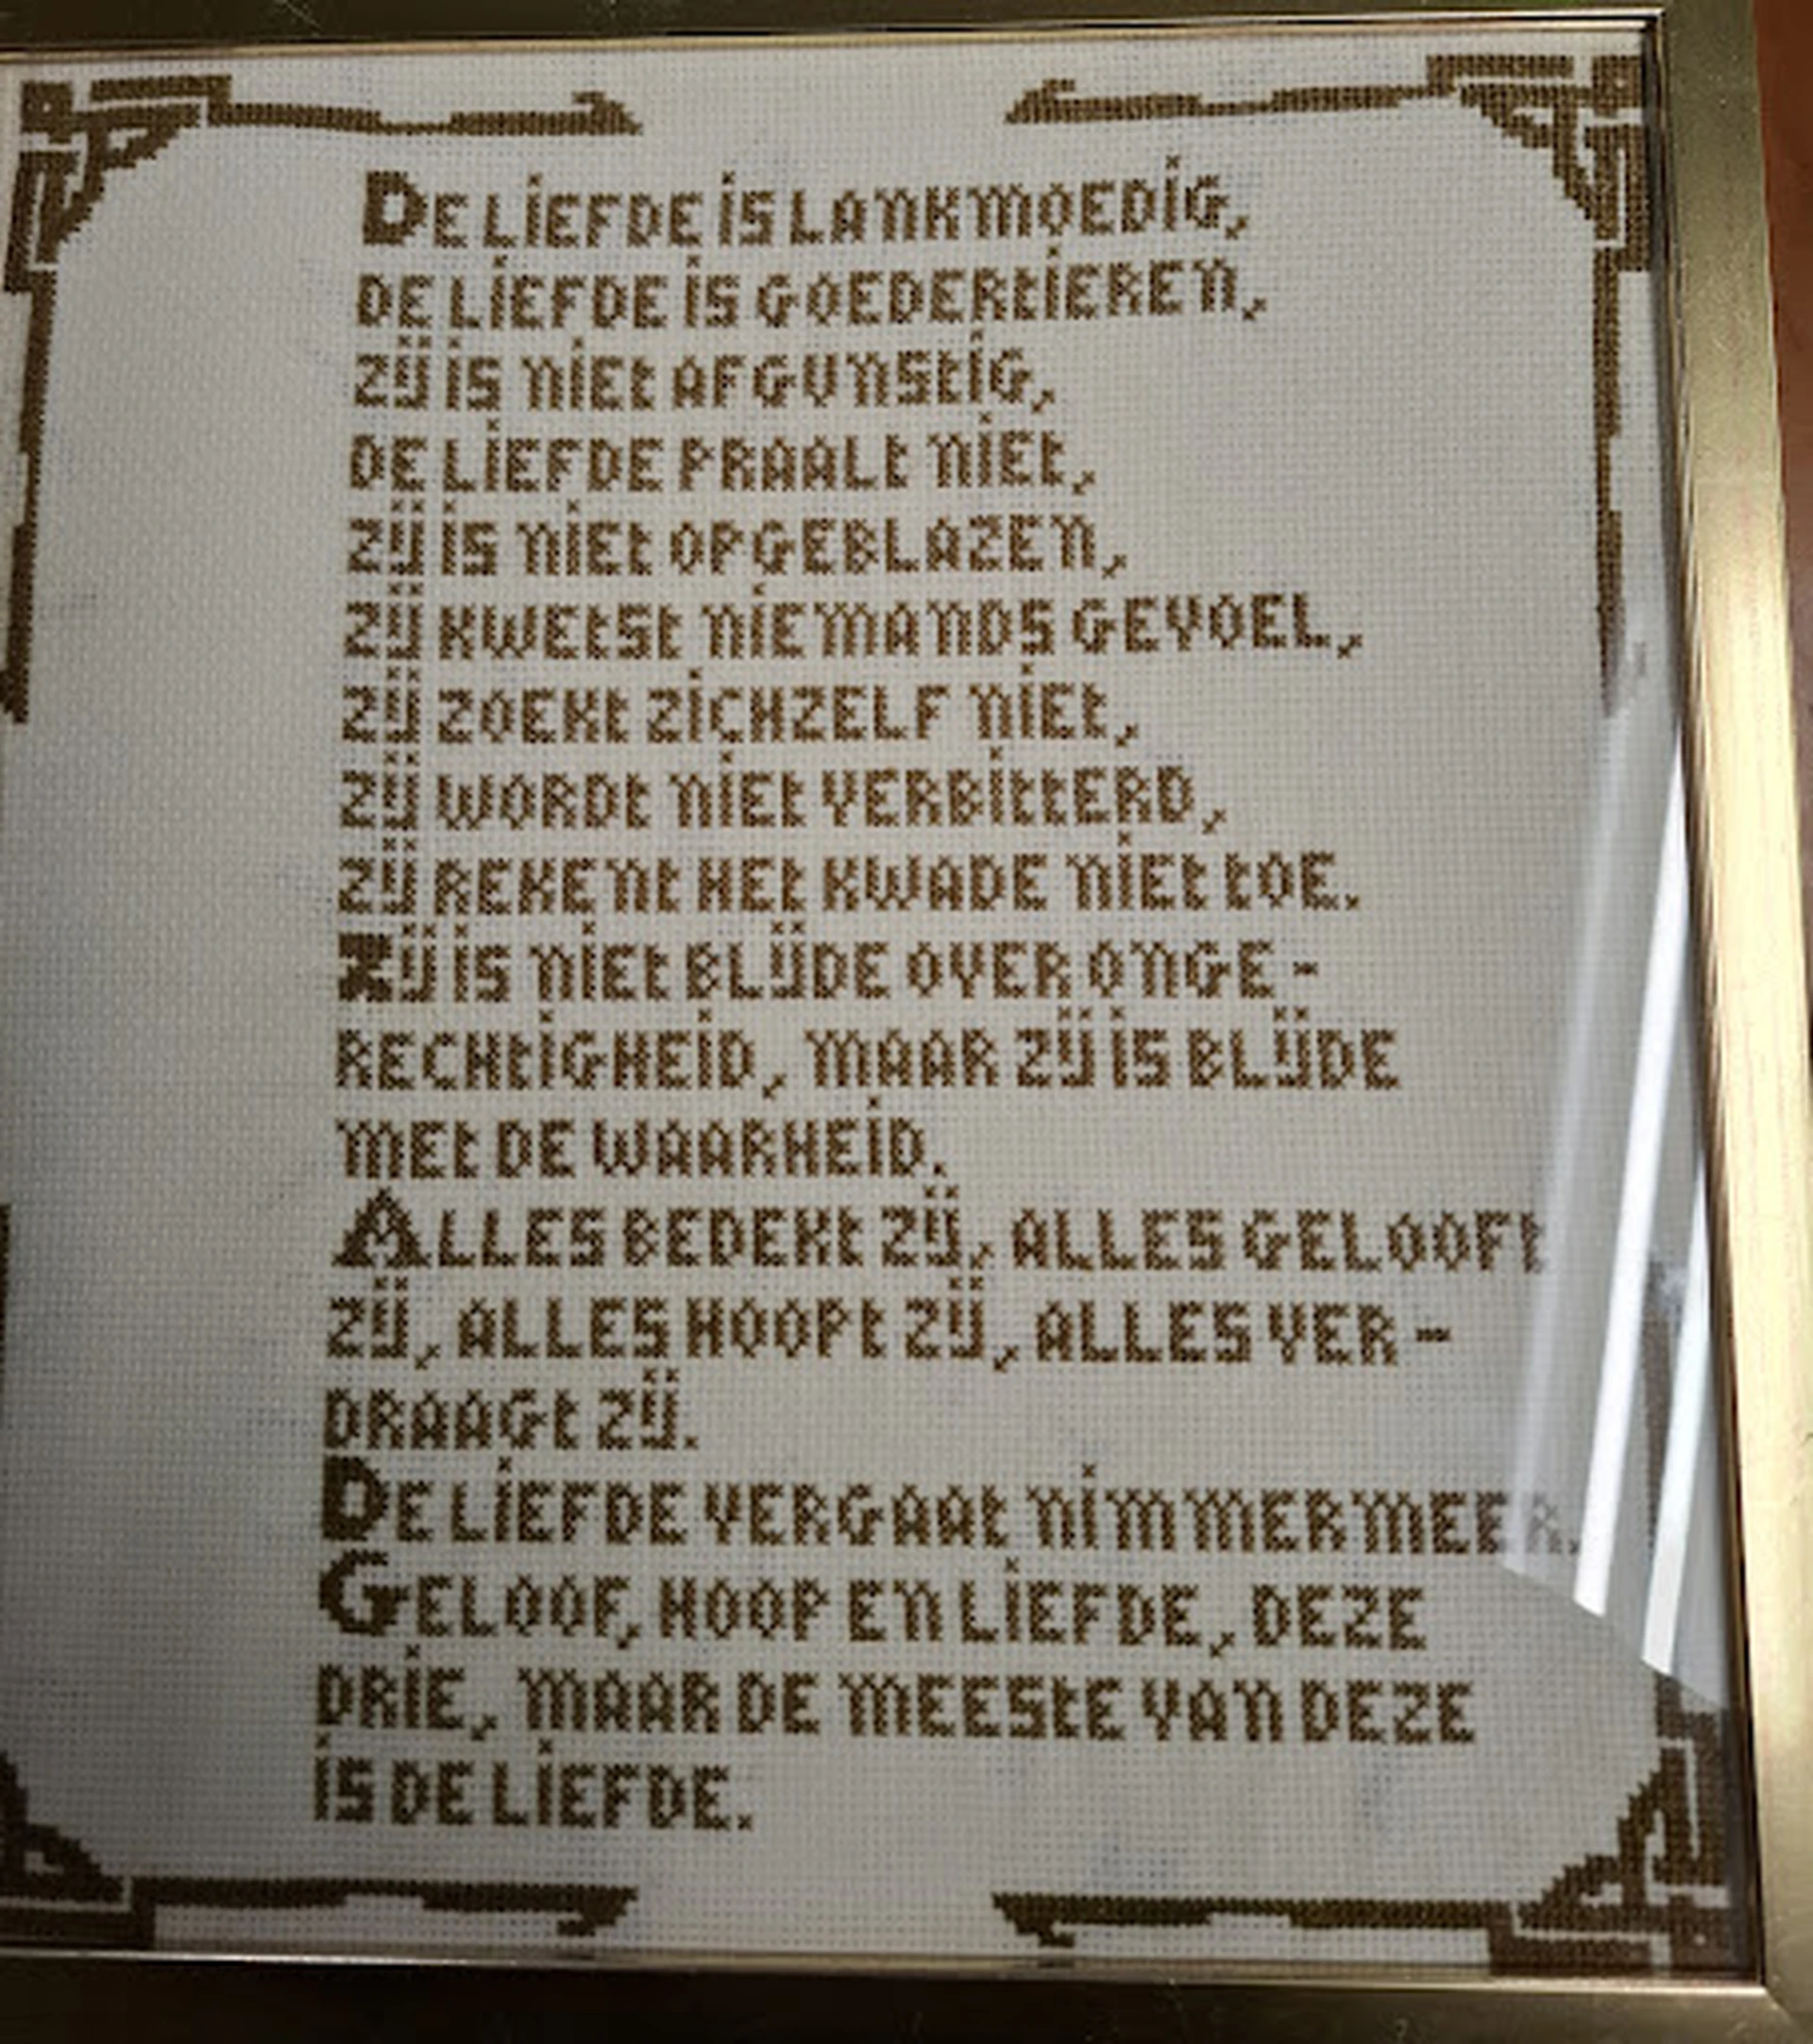 De liefde is lankmoedig,
de liefde is goedertieren,
zij is niet afgunstig,
de liefde praalt niet,
zij is niet opgeblazen,
zij kwetst niemands gevoel,
zij zoekt zichzelf niet,
zij wordt niet verbitterd,
zij rekent het kwade niet toe.
Zij is niet blijde over onge-
rechtigheid, maar zij is blijde
met de waarheid.
Alles bedekt zij, alles gelooft
zij, alles hoopt zij, alles ver-
draagt zij.
De liefde vergaat nimmermeer.
Geloof, hoop en liefde, deze
drie, maar de meeste van deze
is de liefde.